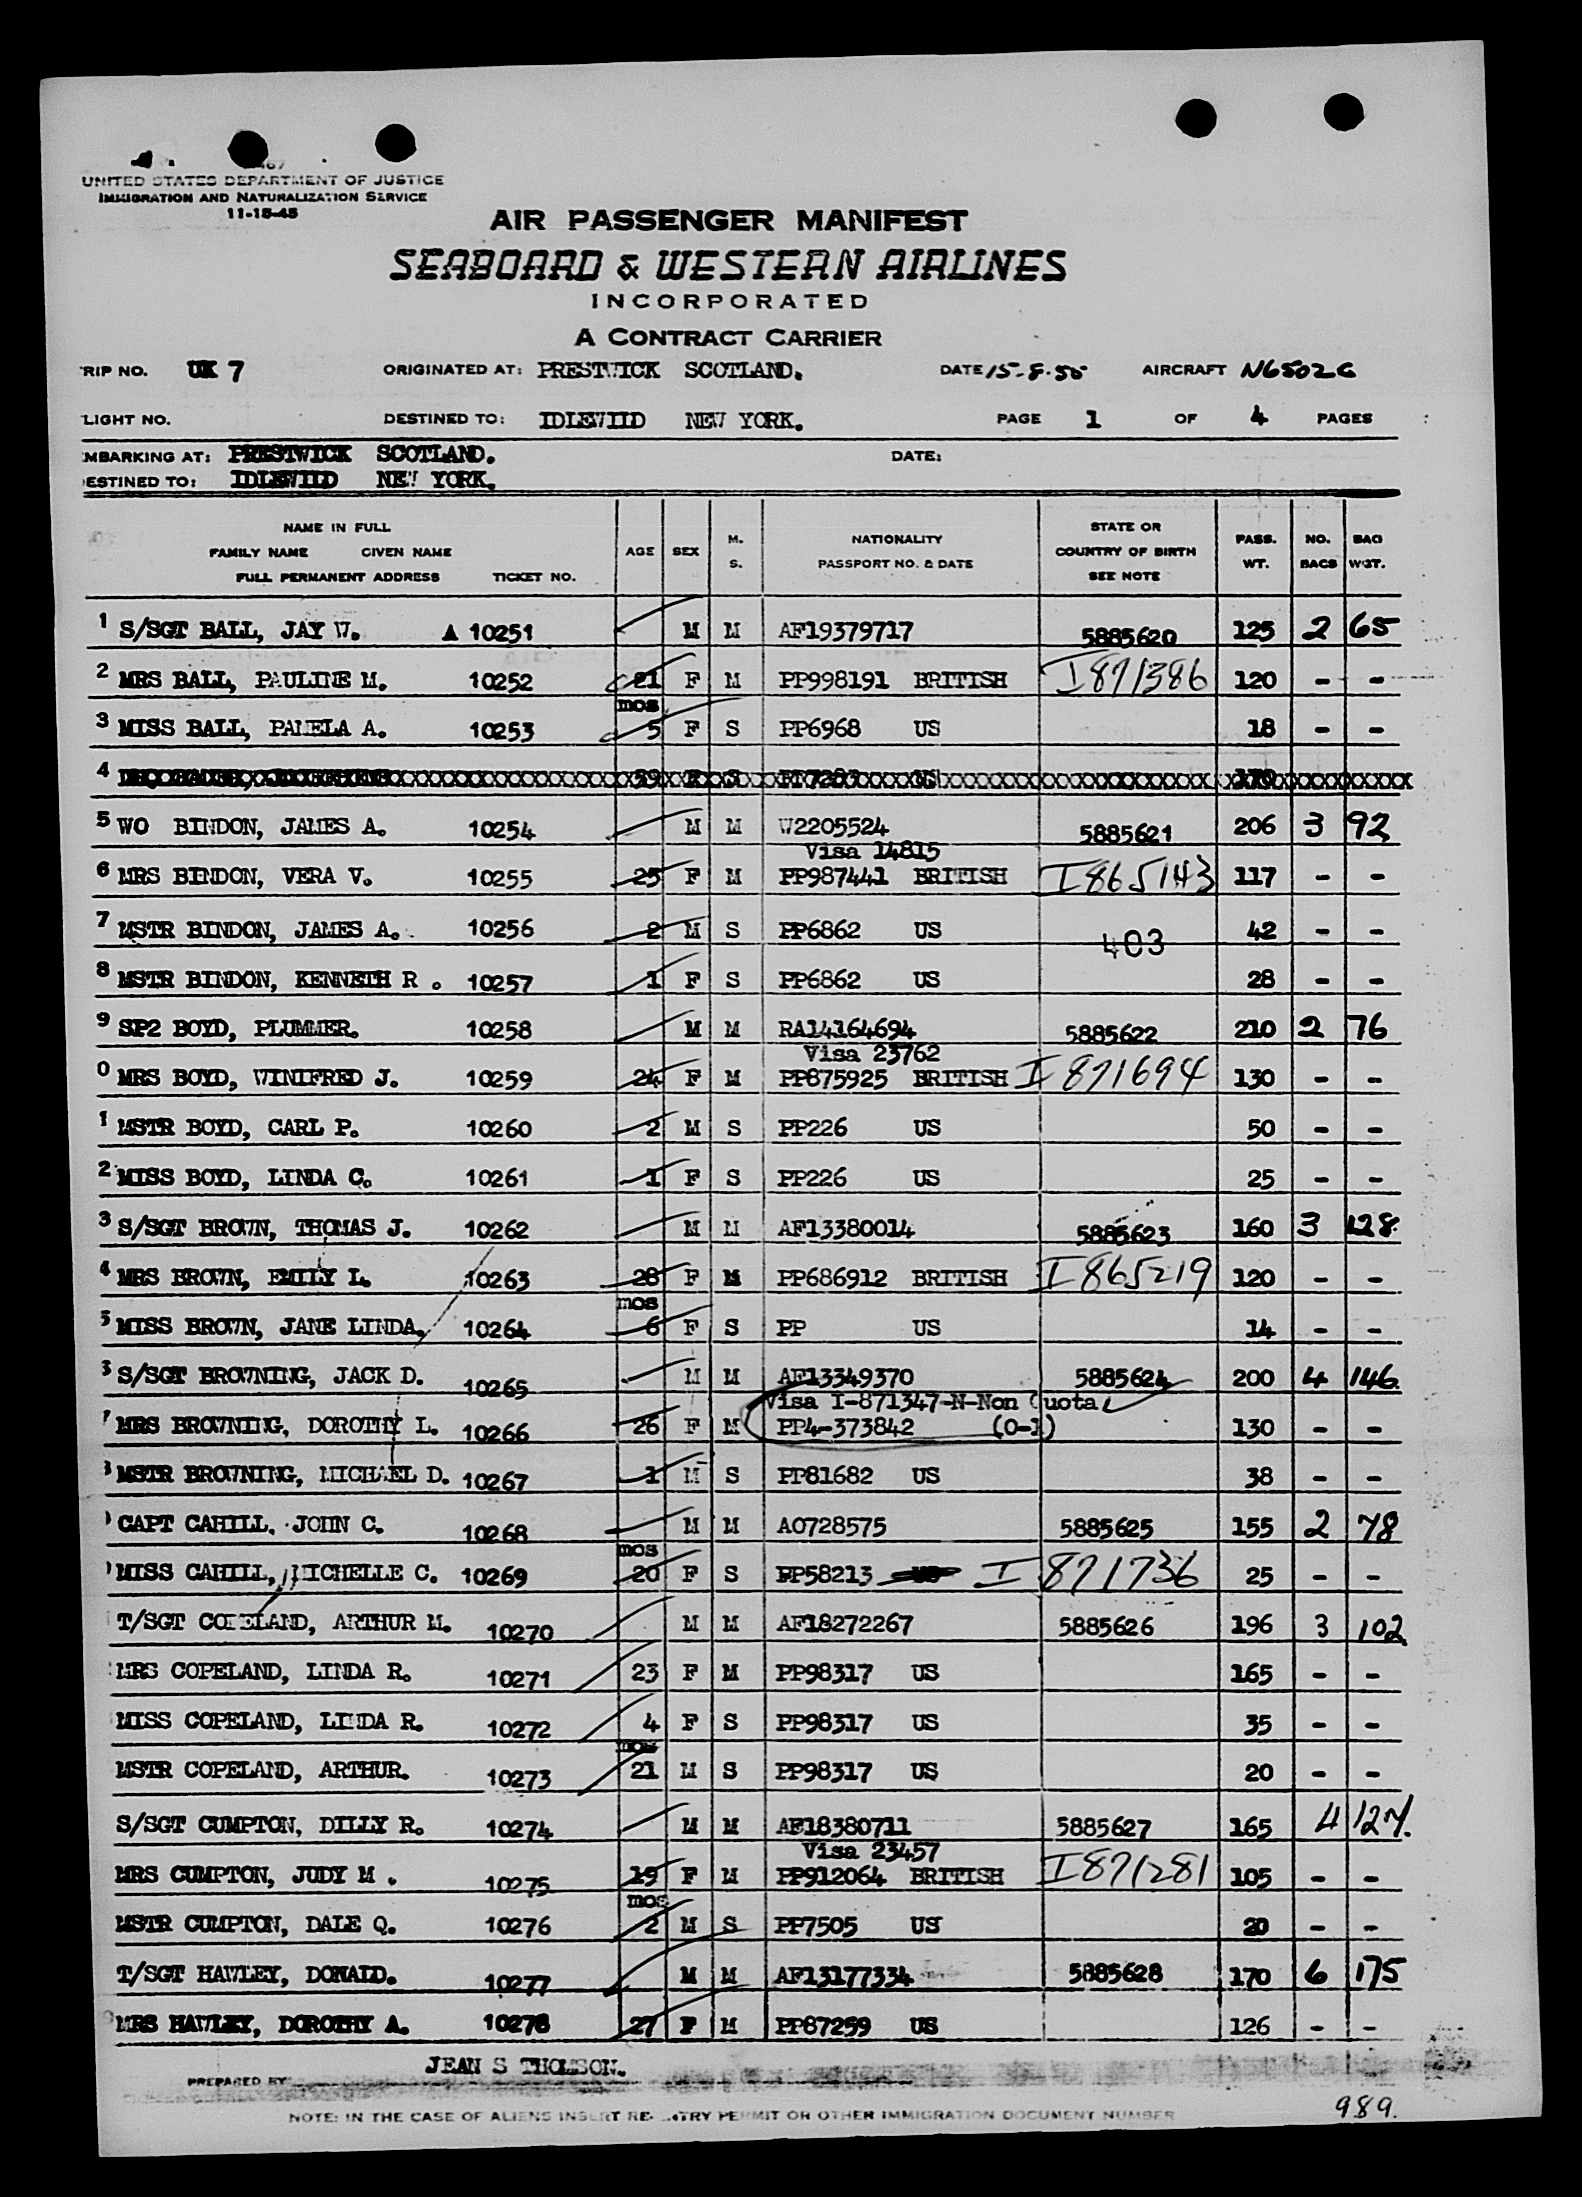 UNITED STATES DEPARTMENT OF JUSTICE
IMMIGRATION AND NATURALIZATION SERVICE
11-15-45
AIR PASSENGER MANIFEST
SEABOARD & WESTERN AIRLINES
INCORPORATED
A CONTRACT CARRIER
RIP NO. UK 7 ORIGINATED AT: PRESTWICK SCOTLAND. DATE 15-8-55 AIRCRAFT N6502C
LIGHT NO. DESTINED TO: IDLEWILD NEW YORK. PAGE 1 OF 4 PAGES
MBARKING AT: PRESTWICK SCOTLAND. DATE:
ESTINED TO: IDLEWILD NEW YORK.
NAME IN FULL STATE OR
FAMILY NAME GIVEN NAME AGE SEX M. NATIONALITY COUNTRY OF BIRTH PASS. NO. BAG
FULL PERMANENT ADDRESS TICKET NO. S. PASSPORT NO. & DATE SEE NOTE WT. BAGS WGT.
1 S/SGT BALL, JAY W. A 10251 M M AF19379717 5885620 125 2 65
2 MRS BALL, PAULINE M. 10252 21 F M PP998191 BRITISH I871386 120 - -
mos
3 MISS BALL, PAMELA A. 10253 5 F S PP6968 US 18 - -
4
5 WO BINDON, JAMES A. 10254 M M W2205524 5885621 206 3 92
Visa 14815
6 MRS BINDON, VERA V. 10255 25 F M PP987441 BRITISH I865143 117 - -
7 MSTR BINDON, JAMES A. 10256 2 M S PP6862 US 403 42 - -
8 MSTR BINDON, KENNETH R . 10257 1 F S PP6862 US 28 - -
9 SP2 BOYD, PLUMMER. 10258 M M RA14164694 5885622 210 2 76
Visa 23762
0 MRS BOYD, WINIFRED J. 10259 24 F M PP875925 BRITISH I871694 130 - -
1 MSTR BOYD, CARL P. 10260 2 M S PP226 US 50 - -
2 MISS BOYD, LINDA C. 10261 1 F S PP226 US 25 - -
3 S/SGT BROWN, THOMAS J. 10262 M M AF13380014 5885623 160 3 128
4 MRS BROWN, EMILY L. 10263 28 F M PP686912 BRITISH I865219 120 - -
mos
5 MISS BROWN, JANE LINDA, 10264 6 F S PP US 14 - -
S/SGT BROWNING, JACK D. 10265 M M AF13349370 5885624 200 4 146
Visa I-871347-N-Non Quota
MRS BROWNING, DOROTHY L. 10266 26 F M PP4-373842 (0-1) 130 - -
MSTR BROWNING, MICHAEL D. 10267 1 M S PP81682 US 38 - -
CAPT CAHILL, JOHN C. 10268 M M AO728575 5885625 155 2 78
mos
MISS CAHILL, MICHELLE C. 10269 20 F S PP58213 US I871736 25 - -
T/SGT COPELAND, ARTHUR M. 10270 M M AF18272267 5885626 196 3 102
MRS COPELAND, LINDA R. 10271 23 F M PP98317 US 165 - -
MISS COPELAND, LINDA R. 10272 4 F S PP98317 US 35 - -
mos
MSTR COPELAND, ARTHUR. 10273 21 M S PP98317 US 20 - -
S/SGT CUMPTON, DILLY R. 10274 M M AF18380711 5885627 165 4 127.
Visa 23457
MRS CUMPTON, JUDY M . 10275 19 F M PP912064 BRITISH I871281 105 - -
mos
MSTR CUMPTON, DALE Q. 10276 2 M S PP7505 US 20 - -
T/SGT HAWLEY, DONALD. 10277 M M AF13177334 5885628 170 6 175
MRS HAWLEY, DOROTHY A. 10278 27 F M PP87259 US 126 - -
JEAN S THOMSON.
PREPARED BY
NOTE: IN THE CASE OF ALIENS INSERT RE-ENTRY PERMIT OR OTHER IMMIGRATION DOCUMENT NUMBER
989.